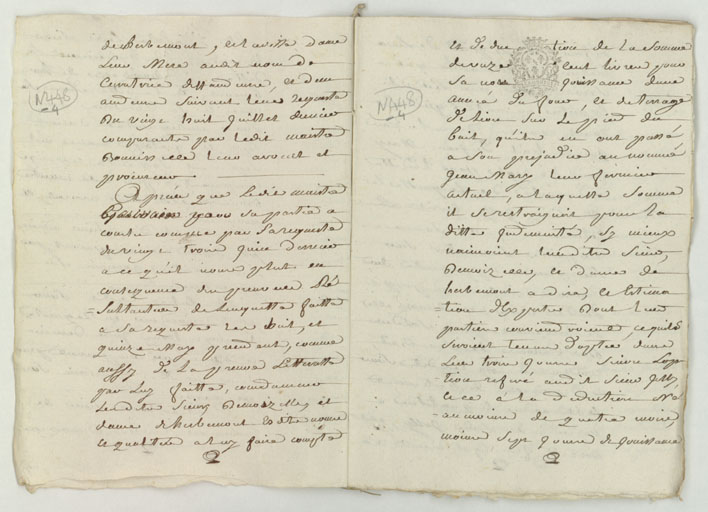 N 448
4
de herbemont, et la ditte dame
leur Mere audit nom de
Curatrice deffendeure, et dem
andeure suivant leur requete
du vingt huit Juillet dernier
comparants par ledit maitre
leur avocat et
procureur
Apres que ledit maitre
pour sa partie a
conclu comme par sa requette
du vingt trois Juin dernier
a ce qu'il nous plut en
consequence du
= de l'enquette faitte
a sa requette les huit, et
quinze May present, comme
aussy de la preuve litteralle
par luy faitte, condamner
lesdits Sieurs Demoiselle, et
dame d'herbemont es dits noms
et qualités a luy faire compte
N 448
4
et de due tion de la somme
de onze cent livres pour
sa non jouissance d'une
année du four, et de terrage
de Sur Le pied du
bail, qu'ils en ont passé
a son prejudice au nommé
Jean Mary leur fermier
actuel, a laquelle somme
il se restraignoit pour la
ditte indemnité, sy mieux
n'aimoient lesdits Sieurs,
Demoiselle, et dame de
herbemont a dire, et Estima
tion d'Experts dont les
parties conviendroient ce qu'ils
seroient tenus d'opter dans
les trois jours sinon L'op
tion referee audit Sieur
et ce a la deduction
au moins de quatre mois,
moins Sept jours de jouissance